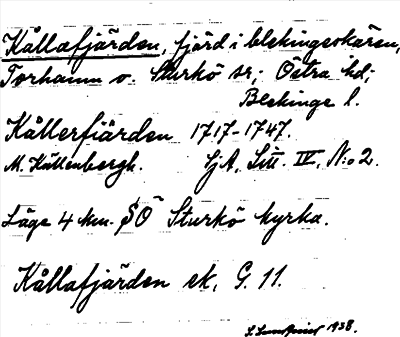 Kållafjärden, fjärd i blekingeskären,
Torhamn o. Sturkö sr; Östra hd;
Blekinge l.
Kållerfiärden 1717-1747.
M. Källenbergh. SjA, Litt. IV, N:o 2.
Läge 4 km. SÖ Sturkö kyrka.
Kållafjärden ek, G. 11.
1938.